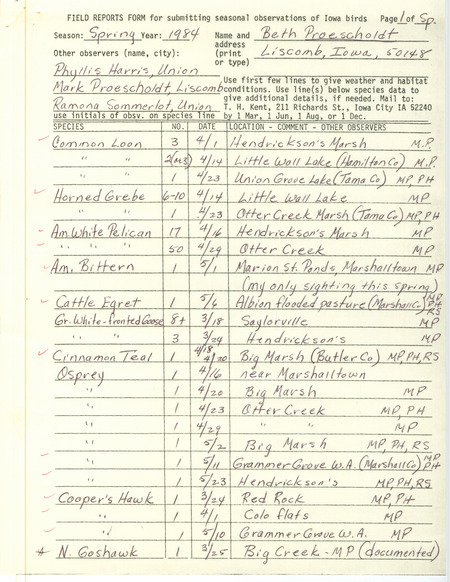 FIELD REPORTS FORM for submitting seasonal observations of Iowa birds Page 1 of 5p.
Season: Spring Year: 1984 Name and Beth Proescholdt
address
Other observers (name, city): (print Liscomb, Iowa, 50148
or type)
Phyllis Harris, Union
Mark Proescholdt, Liscomb
Ramona Sommerlot, Union
Use first few lines to give weather and habitat
conditions. Use line(s) below species data to
give additional details, if needed. Mail to:
T. H. Kent, 211 Richards St., Iowa City IA 52240
use initials of obsv. on species line by 1 Mar, 1 Jun, 1 Aug, or 1 Dec.
SPECIES NO. DATE LOCATION - COMMENT - OTHER OBSERVERS
Common Loon 3 4/1 Hendrickson's Marsh M.P.
" " 4/14 Little Wall Lake (Hamilton Co) M.P.
" 1 4/23 Union Grove Lake (Tama Co) MP, PH
Horned Grebe 6-10 4/14 Little Wall Lake MP
" 1 4/23 Otter Creek Marsh (Tama Co) MP, PH
Am. White Pelican 17 4/16 Hendrickson's Marsh MP
" " " 50 4/29 Otter Creek MP
Am. Bittern 1 5/1 Marion St. Ponds, Marshalltown MP
(my only sighting this spring)
Cattle Egret 1 5/6 Albion flooded pasture (Marshall Co) MP PH RS
Gr. White-fronted Goose 8+ 3/18 Saylorville MP
3 3/24 Hendrickson's MP
Cinnamon Teal 1 4/18 4/20 Big Marsh (Butler Co) MP, PH, RS
Osprey 1 4/16 near Marshalltown
" 1 4/20 Big Marsh MP
" 1 4/23 Otter Creek MP, PH
" 1 4/29 " " MP
" 1 5/2 Big Marsh MP, PH, RS
" 1 5/11 Grammer Grove W.A. (Marshall Co) MP PH
" 1 5/23 Hendrickson's MP, PH, RS
Cooper's Hawk 1 3/24 Red Rock MP, PH
" 1 4/1 Colo flats MP
" 1 5/10 Grammer Grove W.A. MP
* N. Goshawk 1 3/25 Big Creek - MP (documented)